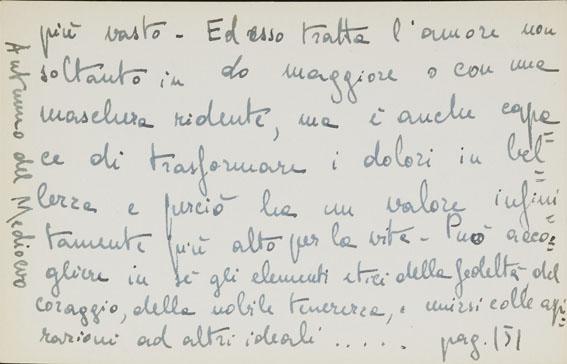 più vasto - Ed esso tratta l'amore non
soltanto in do maggiore o con una
maschera ridente, ma è anche capa
ce di trasformare i dolori in bel=
lezza e perciò ha un valore infini=
tamente più alto per la vita - Può acco=
gliere in sè gli elementi etici della fedeltà, del
coraggio, della nobile tenerezza, e unirsi colle aspi=
razioni ad altri ideali ...... pag. 151
Autunno del Medioevo